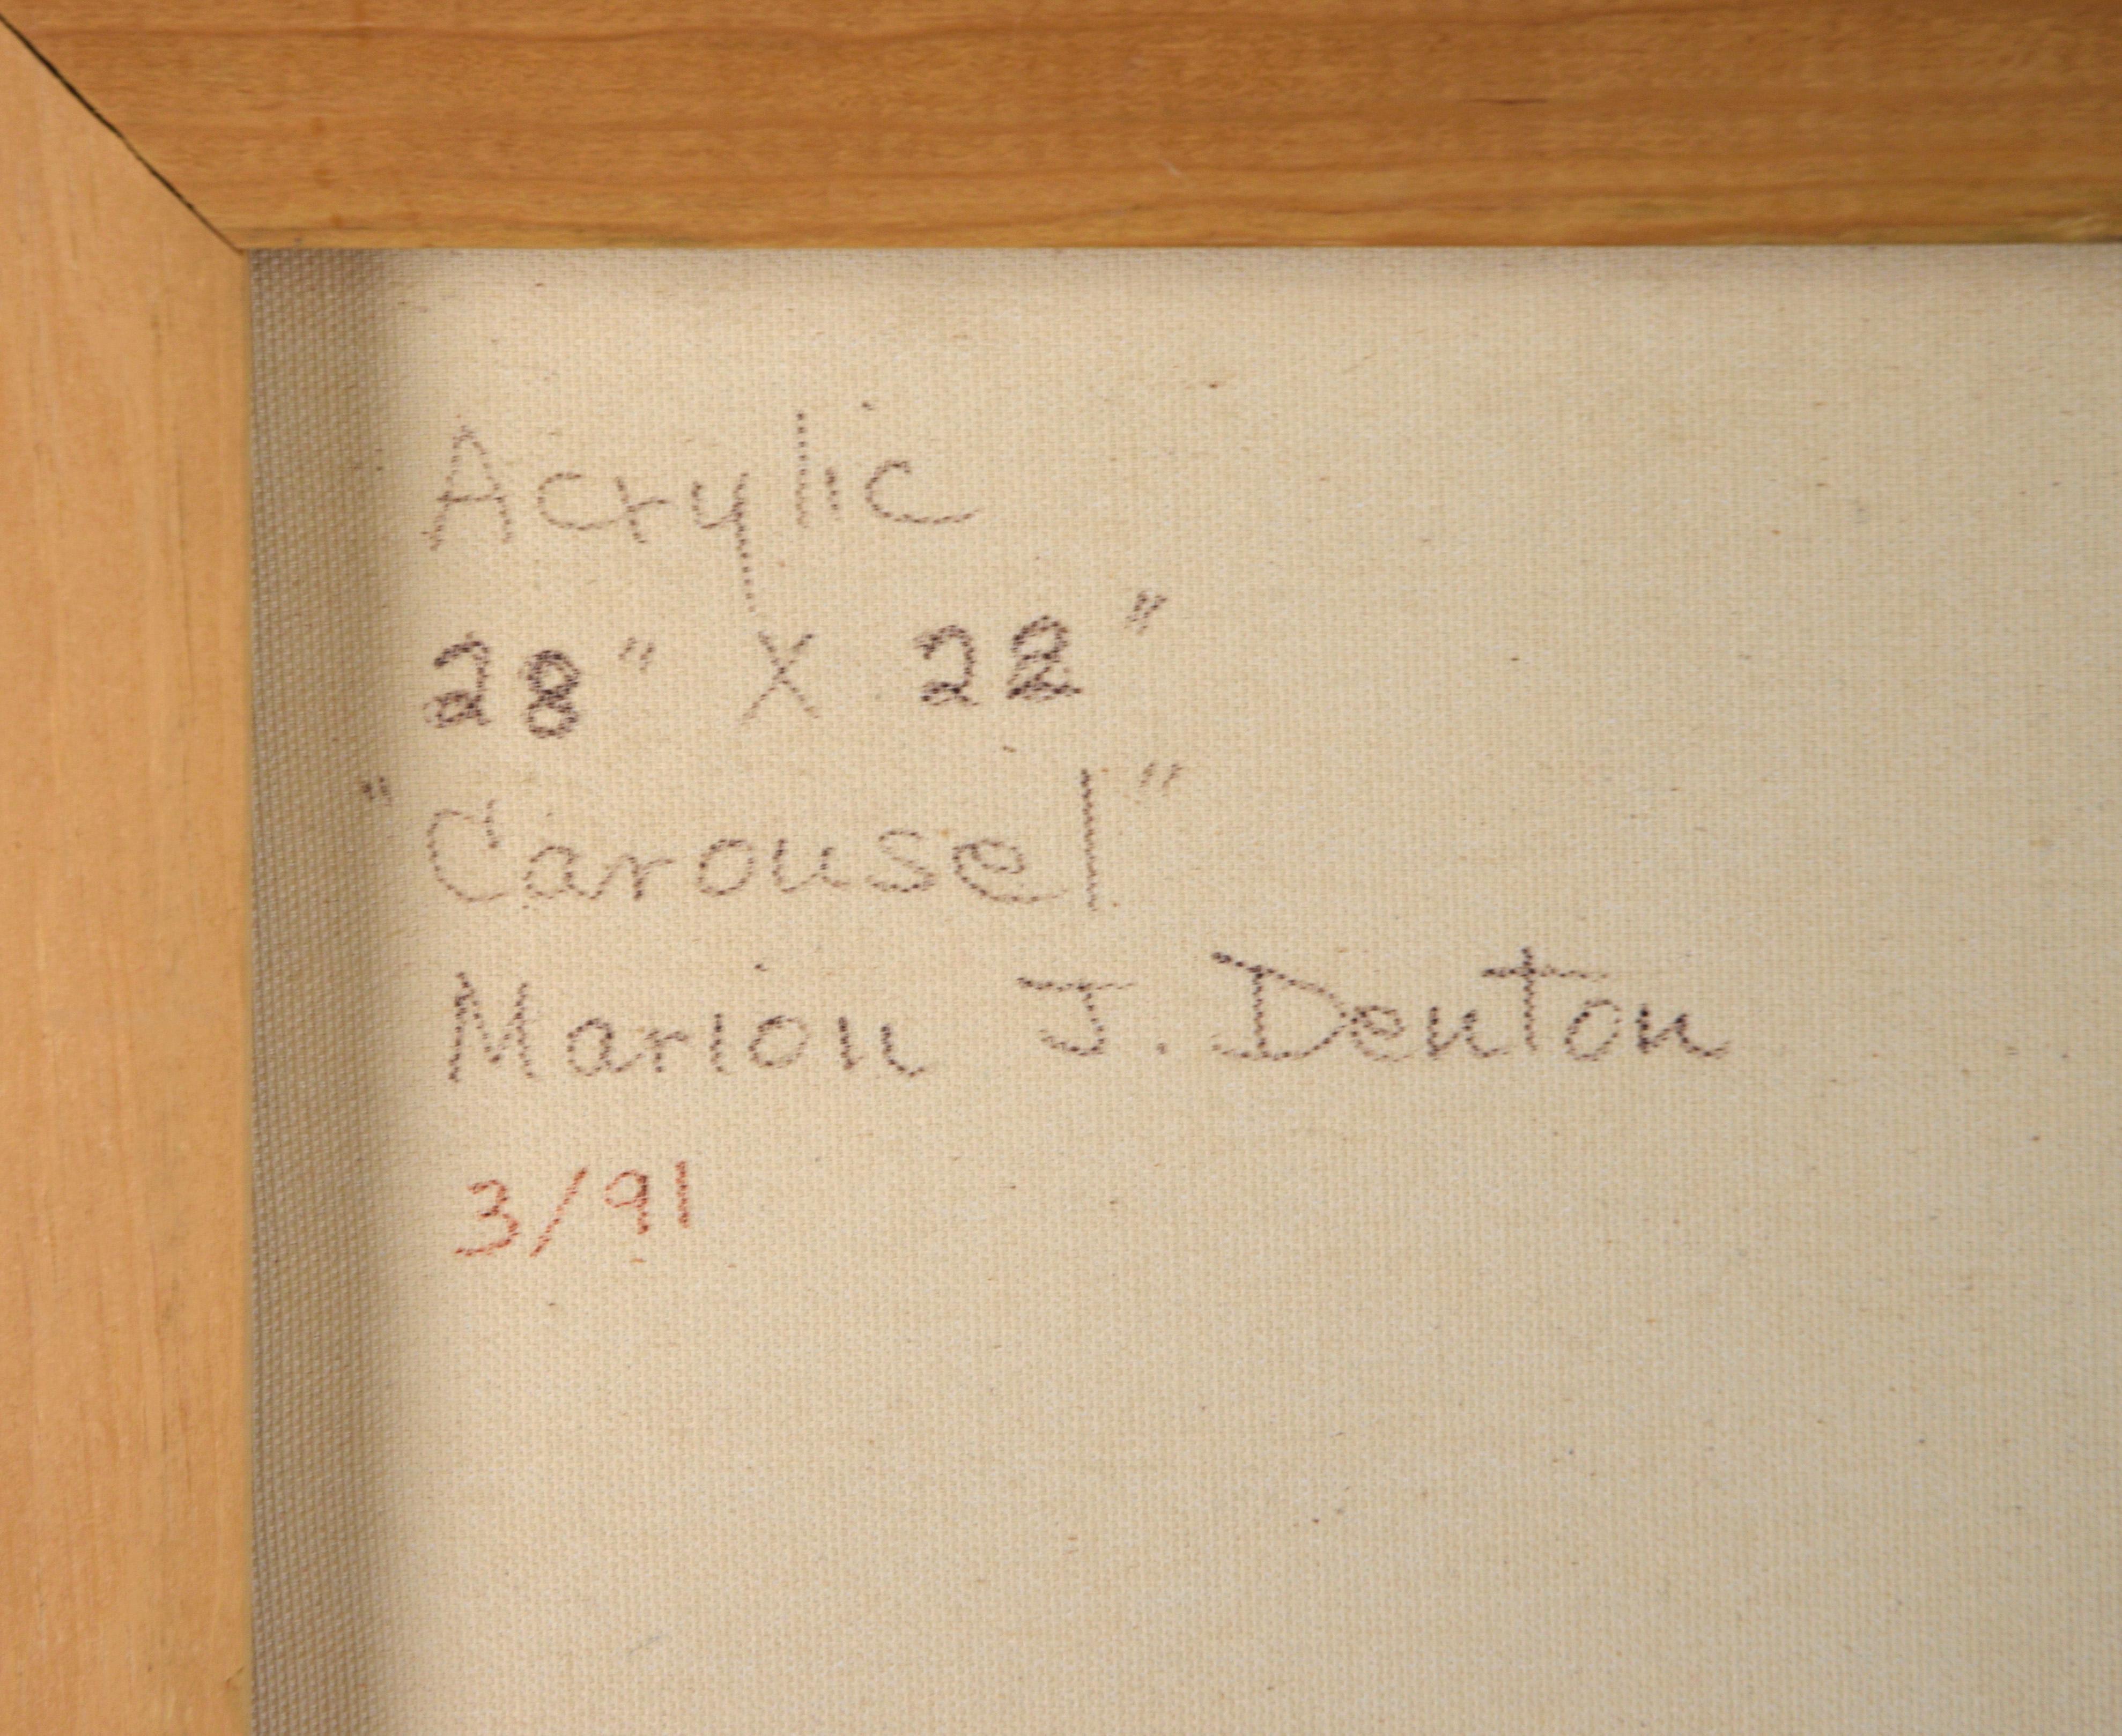 Acrylic
28" X 22"
"Carousel"
Marion J. Denton
3/91